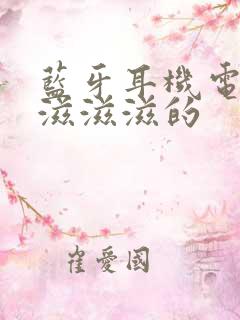 藍牙耳機電
滋滋滋的
崔愛國